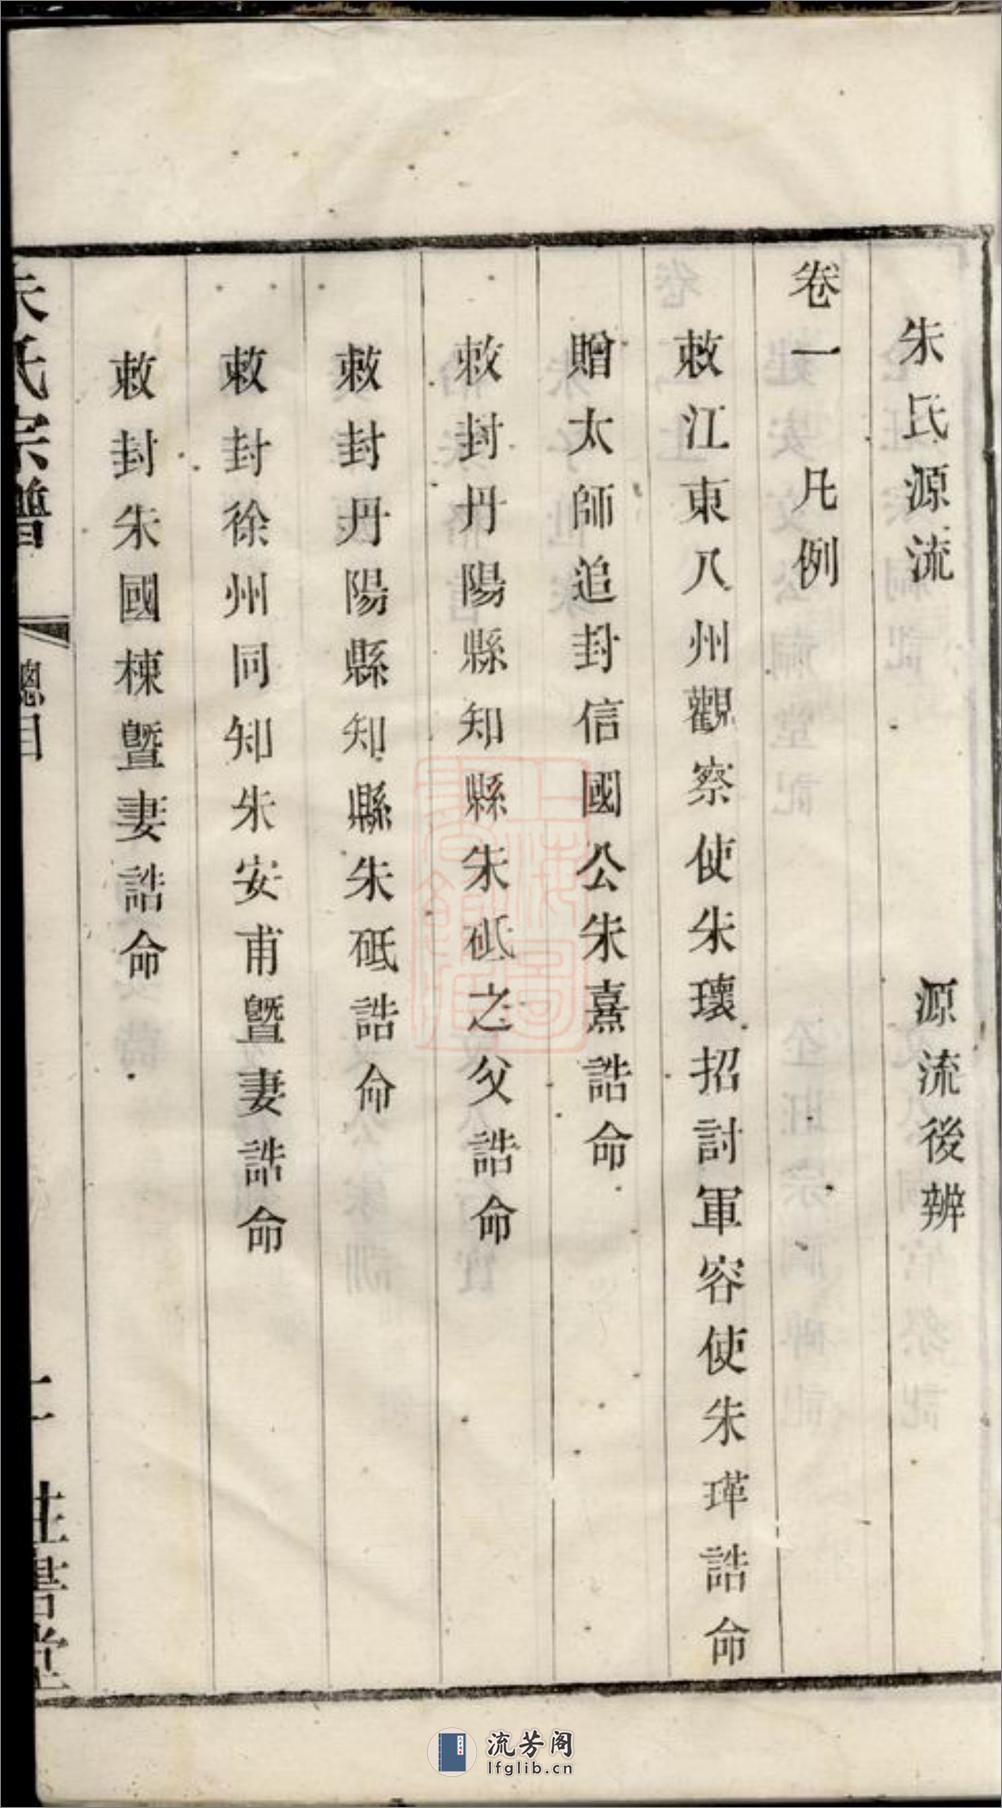 朱氏源流 源流後辨
卷一 凡例
敕江東八州觀察使朱瓌招討軍容使朱瑋誥命
贈太師追封信國公朱熹誥命
敕封丹陽縣知縣朱砥之父誥命
敕封丹陽縣知縣朱砥誥命
敕封徐州同知朱安甫暨妻誥命
敕封朱國棟暨妻誥命
朱氏宗譜 總目 註書堂
上海圖書館藏
流芳阁
lfglib.cn